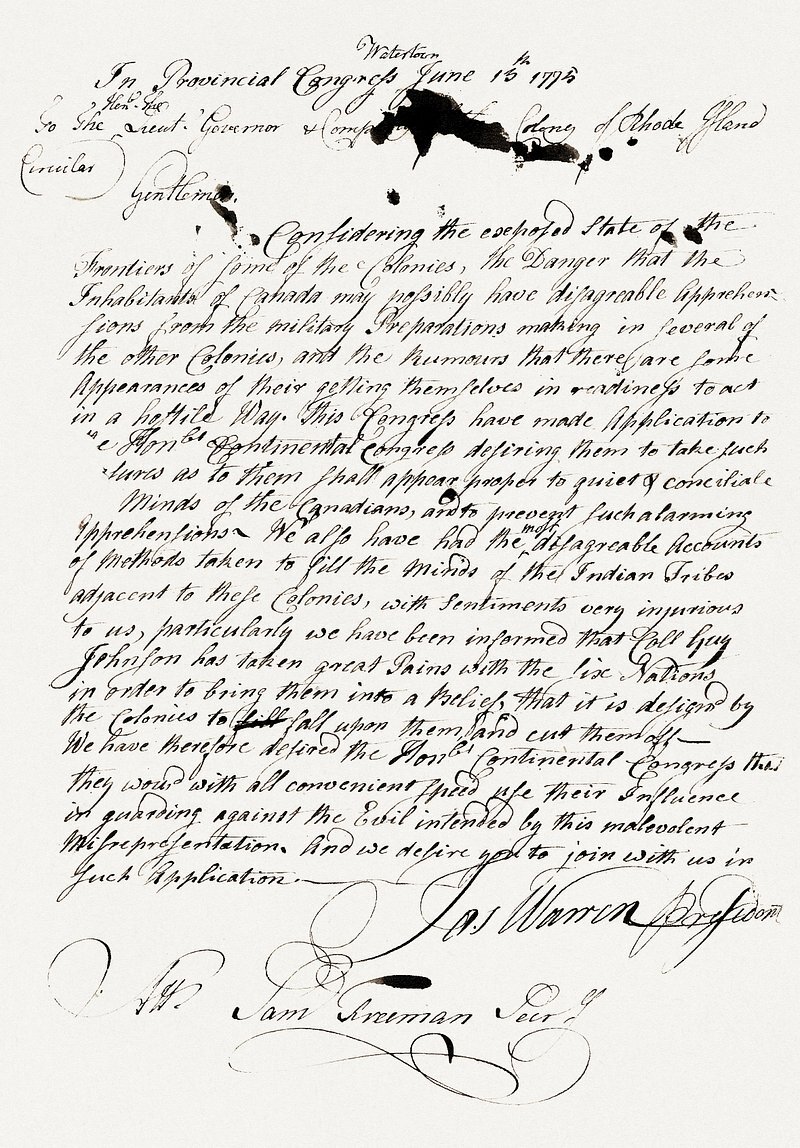 Watertown
In Provincial Congress June 13th 1775
Honble. the
To The Lieut. Governor & Comp Colony of Rhode Island
Circular
Gentlemen.
Considering the exeposed State of the
Frontiers of some of the Colonies, the Danger that the
Inhabitants of Canada may possibly have disagreable Apprehen-
sions from the military Preparations making in several of
the other Colonies, and the Rumours that there are some
Appearances of their getting themselves in readiness to act
in a hostile Way. This Congress have made Application to
e Honbl Continental Congress desiring them to take such
sures as to them shall appear proper to quiet & conciliate
Minds of the Canadians, and to prevent such alarming
Apprehensions We also have had the most disagreable Accounts
of Methods taken to fill the Minds of the Indian Tribes
adjacent to these Colonies, with Sentiments very injurious
to us, particularly we have been informed that Coll Guy
Johnson has taken great Pains with the six Nations
in order to bring them into a Belief, that it is design'd by
the Colonies to fall upon them and cut them off—
We have therefore desired the Honbl Continental Congress that
they wou'd with all convenient speed use their Influence
in guarding against the Evil intended by this malevolent
Misrepresentation. And we desire you to join with us in
such Application.—
Jas Warren President
Att. Saml Freeman Secry